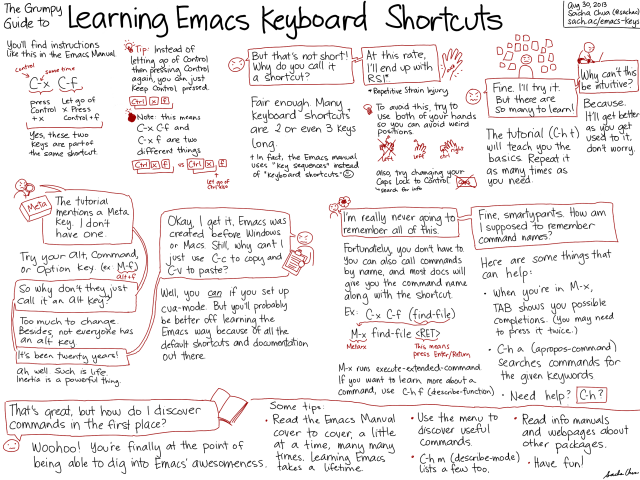 The Grumpy
Guide to
Learning Emacs Keyboard Shortcuts
Aug 30, 2013
Sacha Chua (@sachac)
sach.ac/emacs-keys
You'll find instructions
like this in the Emacs Manual
Control
same time
C-x C-f
press
Control
+ x
Let go of
x. Press
Control + f
Yes, these two
keys are part of
the same shortcut.
Tip: Instead of
letting go of Control
then pressing Control
again, you can just
keep Control pressed.
Ctrl x f
Note: this means
C-x C-f and
C-x f are two
different things
Ctrl x f vs Ctrl x f
Let go of
Ctrl
But that's not short!
Why do you call it
a shortcut?
At this rate,
I'll end up with
RSI*
* Repetitive Strain Injury
Fair enough. Many
keyboard shortcuts
are 2 or even 3 keys
long.
+ In fact, the Emacs manual
uses "key sequences" instead
of "keyboard shortcuts"
To avoid this, try to
use both of your hands
so you can avoid weird
positions.
left
left
right
also, try changing your
Caps Lock to Control.
search for info
Fine. I'll try it.
But there are
so many to learn!
The tutorial (C-h t)
will teach you the
basics. Repeat it
as many times as
you need.
Why can't this
be intuitive?
Because.
It'll get better
as you get
used to it,
don't worry.
Meta
The tutorial
mentions a Meta
key. I don't
have one.
Try your Alt, Command,
or Option key. (ex: M-f)
alt+f
So why don't they just
call it an Alt key?
Too much to change.
Besides, not everyone has
an alt key.
It's been twenty years!
Ah, well. Such is life.
Inertia is a powerful thing.
Okay, I get it, Emacs was
created before Windows
or Macs. Still, why can't I
just use C-c to copy and
C-v to paste?
Well, you can if you set up
cua-mode. But you'll probably
be better off learning the
Emacs way because of all the
default shortcuts and documentation
out there.
I'm really never going to
remember all of this.
Fortunately, you don't have to.
You can also call commands
by name, and most docs will
give you the command name
along with the shortcut.
Ex: C-x C-f (find-file)
M-x find-file <RET>
Meta+x
This means
press Enter/Return
M-x runs execute-extended-command
If you want to learn more about a
command, use C-h f (describe-function)
Fine, smartypants. How am
I supposed to remember
command names?
Here are some things that
can help:
• When you're in M-x,
TAB shows you possible
completions. (You may need
to press it twice.)
• C-h a (apropos-command)
searches commands for
the given keywords
• Need help? C-h ?
That's great, but how do I discover
commands in the first place?
Woohoo! You're finally at the point of
being able to dig into Emacs' awesomeness.
Some tips:
• Read the Emacs Manual
cover to cover, a little
at a time, many many
times. Learning Emacs
takes a lifetime.
• Use the menu to
discover useful
commands.
• C-h m (describe-mode)
lists a few too.
• Read info manuals
and webpages about
other packages.
• Have fun!
Sacha Chua